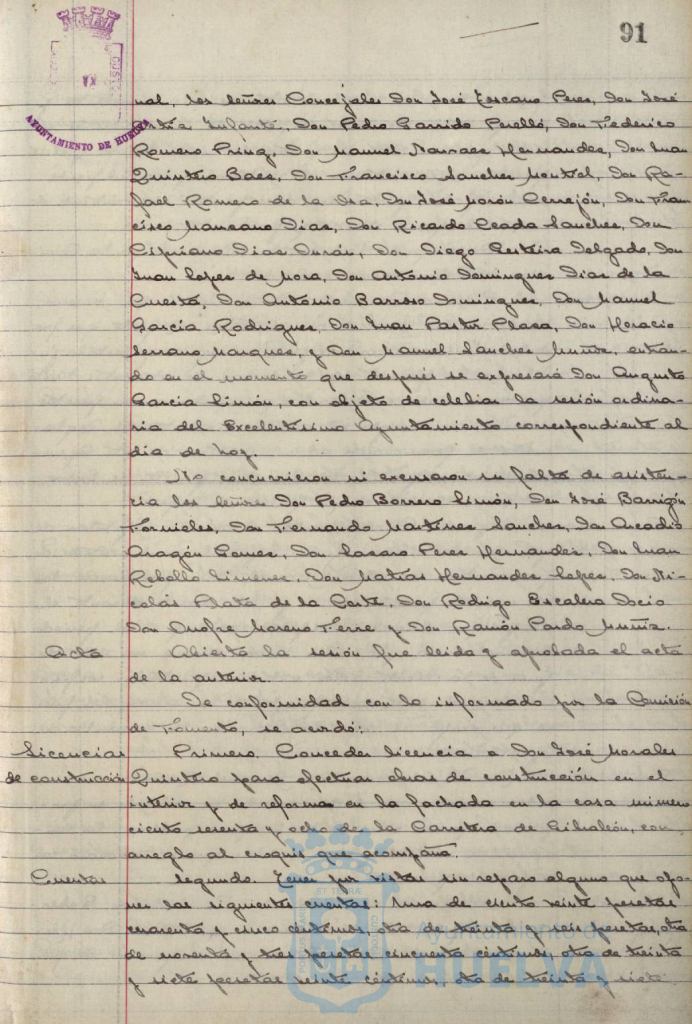 91
AYUNTAMIENTO DE HUELVA
nal, los señores Concejales Don José Toscano Perez, Don José
Infante, Don Pedro Garrido Perelló, Don Federico
Romero Prinq, Don Manuel Narvaez Hernandez, Don Juan
Quintero Baez, Don Francisco Sanchez Montiel, Don Ra-
fael Romero de la Osa, Don José Morón Cerrejón, Don Fran
cisco Manzano Diaz, Don Ricardo Ceada Sanchez, Don
Cipriano Diaz Durán, Don Diego Delgado, Don
Juan Lopez de Mora, Don Antonio Dominguez Diaz de la
Cuesta, Don Antonio Barroso Dominguez, Don Manuel
Garcia Rodriguez, Don Juan Pastor Plaza, Don Horacio
Serrano Marquez, y Don Manuel Sanchez Muñiz, entran-
do en el momento que después se expresará Don Augusto
Garcia Simón, con objeto de celebrar la sesión ordina-
ria del Excelentisimo Ayuntamiento correspondiente al
dia de hoy.
No concurrieron ni excusaron su falta de asisten-
cia los señores Don Pedro Borrero Limón, Don José Barrigón
Fornieles, Don Fernando Martinez Sanchez, Don Arcadio
Aragón Gomez, Don Lazaro Perez Hernandez, Don Juan
Rebollo Jimenez, Don Matias Hernandez Lopez, Don Ni-
colás Plata de la Corte, Don Rodrigo Escalera Docio
Don Onofre Moreno Ferre y Don Ramón Pardo Muñiz.
Acta Abierta la sesión fue leida y aprobada el acta
de la anterior.
De conformidad con lo informado por la Comisión
de Fomento, se acordó:
Licencias Primero. Conceder licencia a Don José Morales
de construcción Quintero para efectuar obras de construcción en el
interior y de reforma en la fachada en la casa número
ciento setenta y ocho de la Carretera de Gibraleón, con
arreglo al croquis que acompaña.
Cuentas Segundo. Tener por vistas sin reparo alguno que opo-
ner las siguientes cuentas: Una de ciento veinte pesetas
cuarenta y cinco céntimos, otra de treinta y seis pesetas, otra
de noventa y tres pesetas cincuenta céntimos, otra de treinta
y siete pesetas veinte céntimos, otra de treinta y siete
Ayuntamiento de
HUELVA